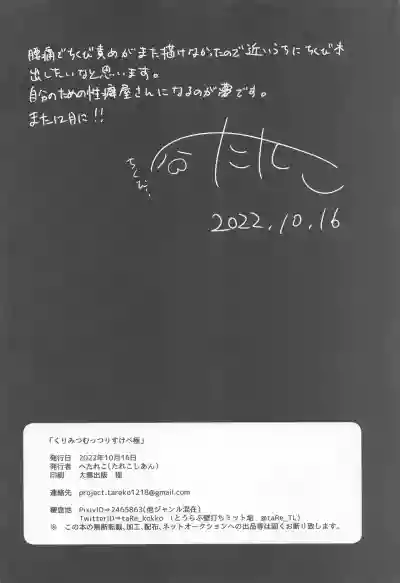 腰痛でちくび責めがまた描けなかったので近いうちにちくび本
出したいなと思います。
自分のための性癖屋さんになるのが夢です。
また12月に!!
ちくび!
たれこ
2022.10.16
「くりみつむっつりすけべ極」
発行日 2022年10月16日
発行者 へたれこ(たれこしあん)
印刷 大陽出版 様
連絡先 project.tareko1218@gmail.com
棲息地 PixivID⇒2465863(他ジャンル混在)
TwitterID⇒taRe_kokko (とうらぶ壁打ちミット垢 @taRe_TL)
※ この本の無断転載、加工、配布、ネットオークションへの出品等は固くお断り致します。